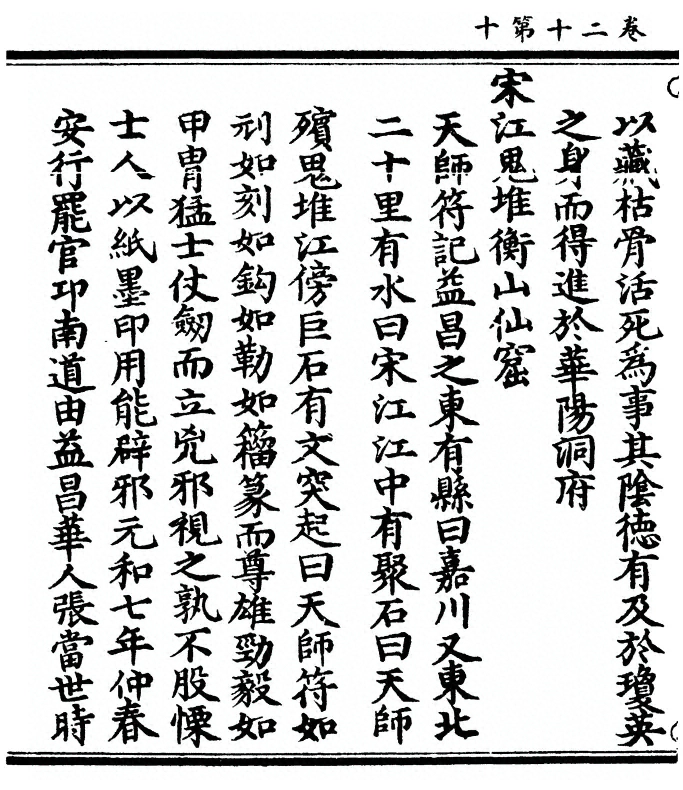 卷二十第十
以藏枯骨活死為事其陰德有及於瓊英
之身而得進於華陽洞府
宋江鬼堆衡山仙窟
天師符記益昌之東有縣曰嘉川又東北
二十里有水曰宋江江中有聚石曰天師
殯鬼堆江傍巨石有文突起曰天師符如
刓如刻如鈎如勒如籀篆而尊雄勁毅如
甲冑猛士仗劒而立兇邪視之孰不股慄
士人以紙墨印用能辟邪元和七年仲春
安行罷官邛南道由益昌華人張當世時